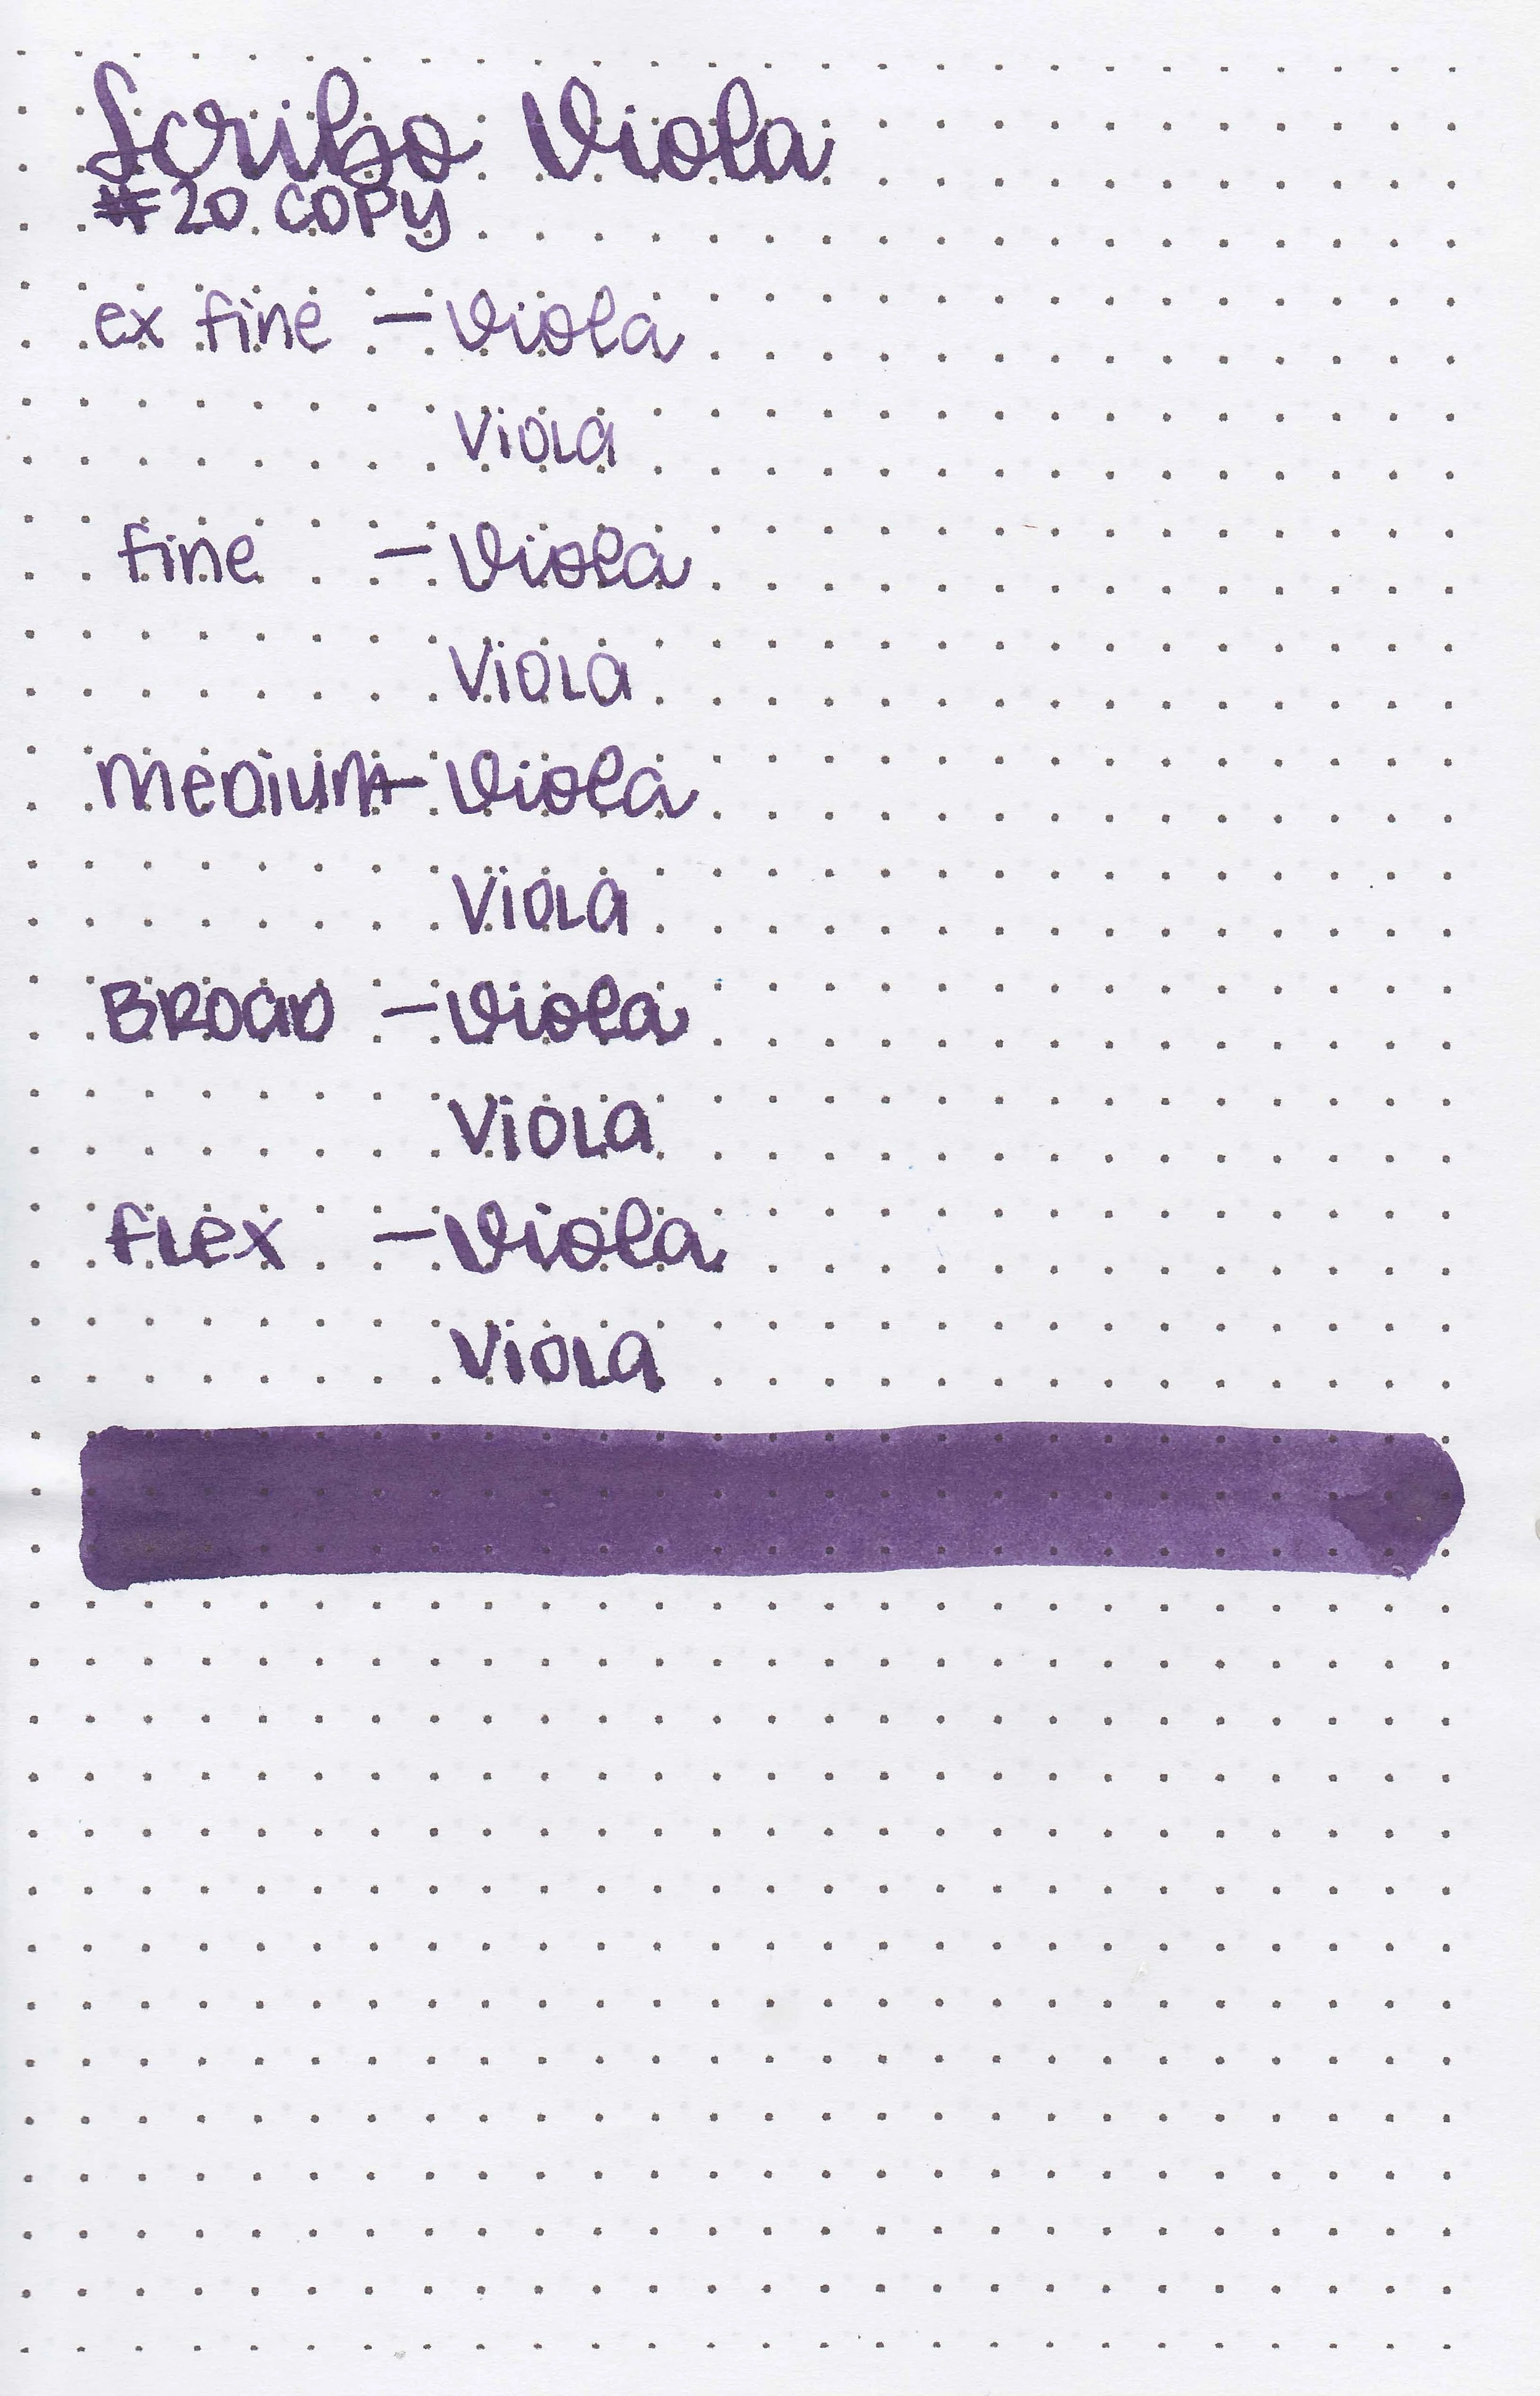 Scribo Viola
#20 COPY
ex fine - Viola
Viola
fine - Viola
Viola
Medium - Viola
Viola
Broad - Viola
Viola
flex - Viola
Viola